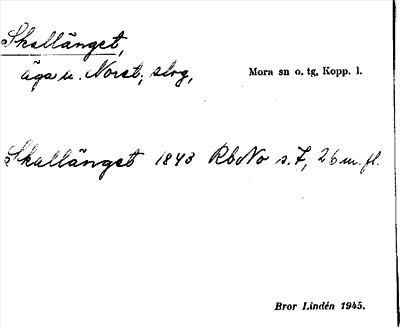 Skallänget,
äga u. Norst; slog, Mora sn o. tg, Kopp. l.
Skallänget 1843 RbNo s. 7, 26 m. fl.
Bror Lindén 1945.